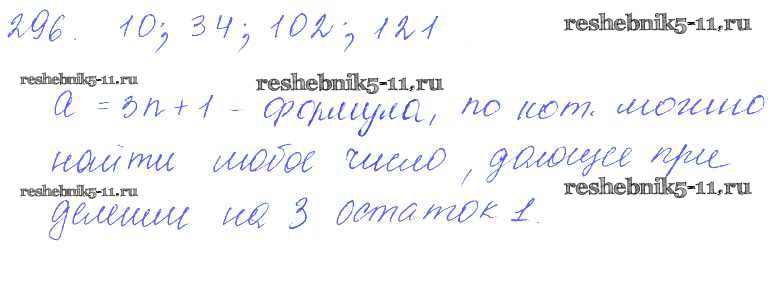 296. 10; 34; 102; 121
reshebnik5-11.ru
reshebnik5-11.ru
reshebnik5-11.ru
a = 3n + 1 - формула, по кот. можно
найти любое число, дающее при
reshebnik5-11.ru
reshebnik5-11.ru
делении на 3 остаток 1.